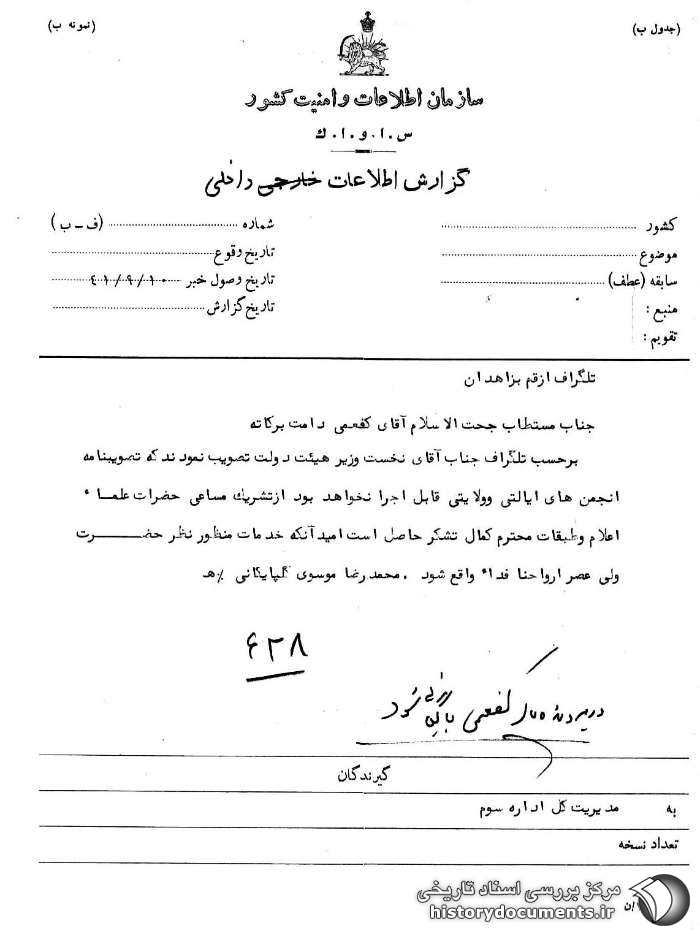 (جدول ب)
(نمونه ب)
سازمان اطلاعات و امنیت کشور
س.ا.و.ا.ك
گزارش اطلاعات خارجی داخلی
کشور
شماره (ف-ب)
موضوع
تاریخ وقوع
سابقه (عطف)
تاریخ وصول خبر ۴۱/۹/۱۰
منبع :
تاریخ گزارش
تقویم :
تلگراف از قم بزاهدان
جناب مستطاب جحت الاسلام آقای کفعمی دامت برکاته
برحسب تلگراف جناب آقای نخست وزیر هیئت دولت تصویب نمودند که تصویبنامه
انجمن های ایالتی وولایتی قابل اجرا نخواهد بود ازتشریك مساعی حضرات علماء
اعلام وطبقات محترم کمال تشکر حاصل است امید آنکه خدمات منظور نظر حضرت
ولی عصر ارواحنا فداء واقع شود . محمد رضا موسوی گلپایگانی ٪هـ
۶۲۸
کفعمی بایگانی شود
گیرندگان
به مدیریت کل اداره سوم
تعداد نسخه
مرکز بررسی اسناد تاریخی
historydocuments.ir